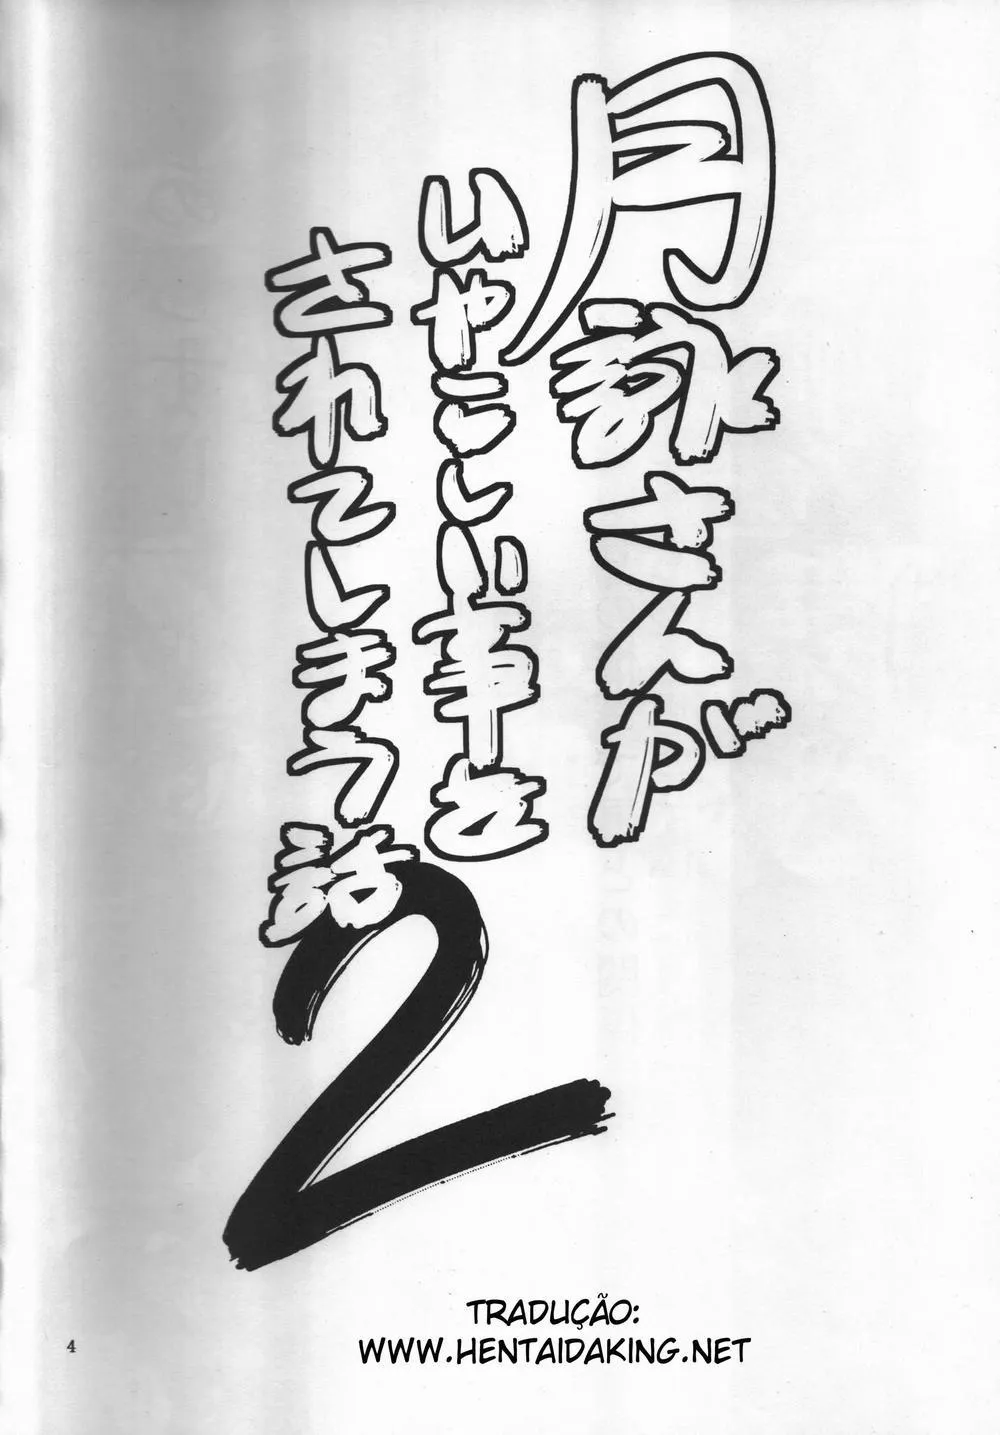 月詠さんが
いやこしい事を
されてしまう話
2
TRADUÇÃO:
WWW.HENTAIDAKING.NET
4